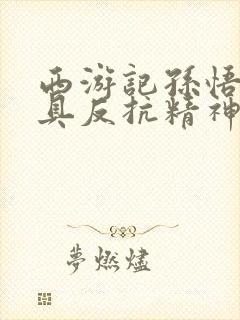 西游記孫悟
具反抗精神
夢燃燼